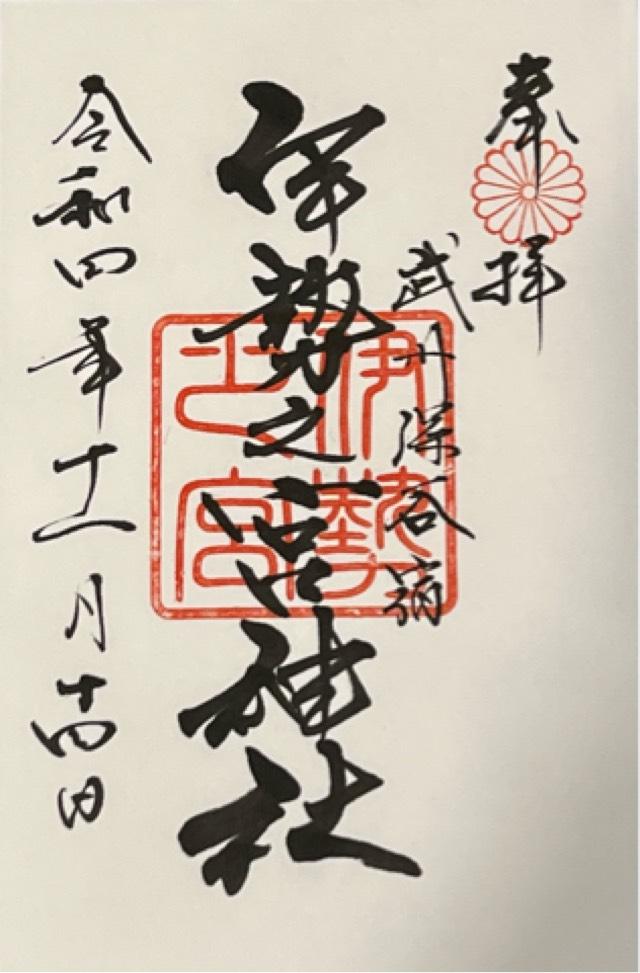 奉拝
武州深谷宿
伊勢之宮神社
伊勢
之宮
令和四年十一月十四日